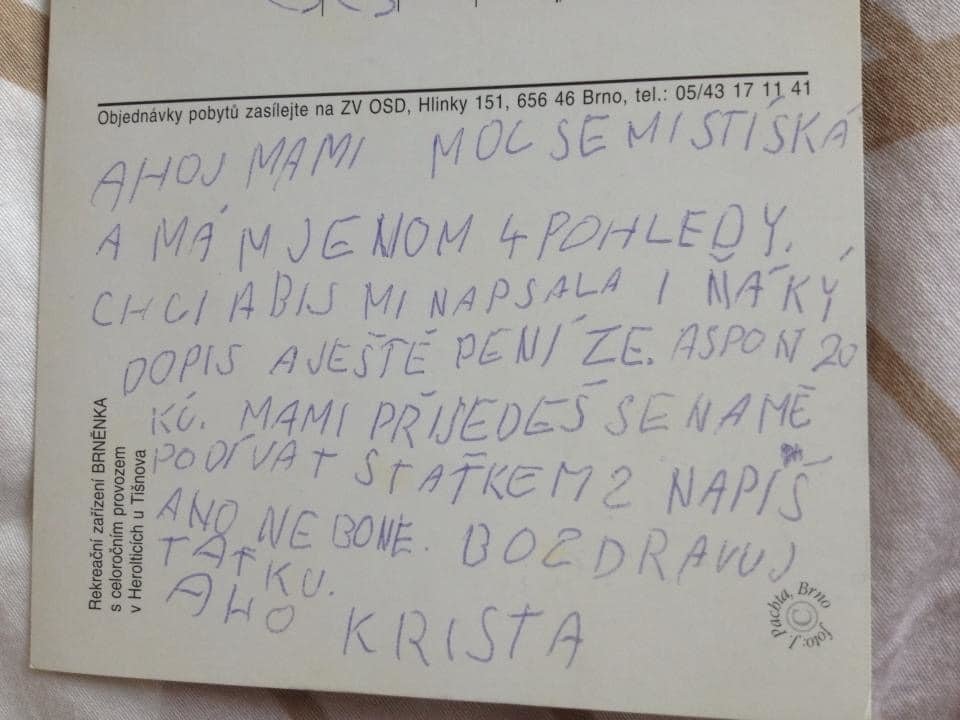 Objednávky pobytů zasílejte na ZV OSD, Hlinky 151, 656 46 Brno, tel.: 05/43 17 11 41
AHOJ MAMI MOC SE MI STÍŠKÁ
A MÁM JENOM 4 POHLEDY.
CHCI ABIS MI NAPSALA I ŇÁKÝ
DOPIS A JEŠTĚ PENÍZE. ASPON 20
KŮ. MAMI PŘIJEDEŠ SE NA MĚ
PODÍVAT STAŤKEM? NAPIŠ
ANO NEBONE. BOZDRAVUJ
TAŤKU.
AHO KRISTA
Rekreační zařízení BRNĚNKA
s celoročním provozem
v Herolticích u Tišnova
foto: J. Pachta, Brno
©